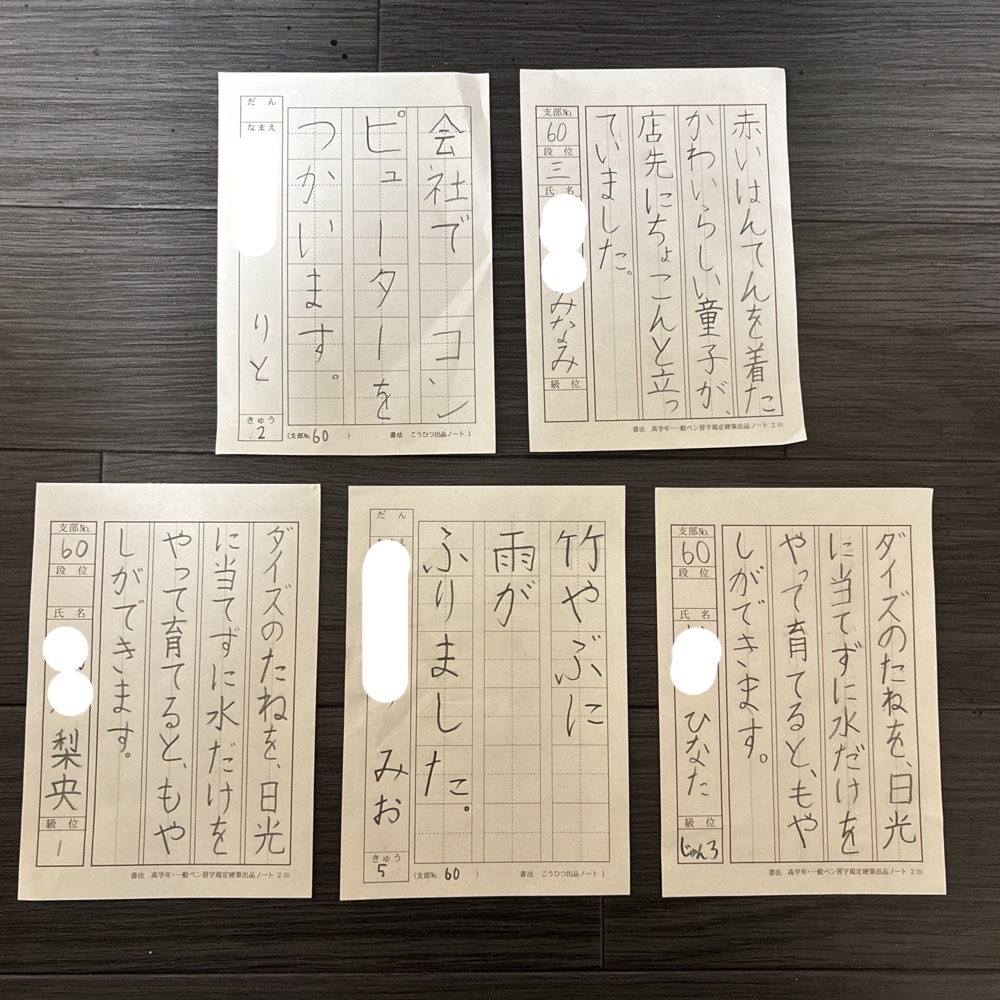 会社で コン
ピューターを
つかいます。
だん
なまえ
りと
きゅう
2
(支部No. 60 )
書法 こうひつ出品ノート 1
赤いはんてんを着た
かわいらしい童子が、
店先にちょこんと立っ
ていました。
支部No.
60
段 位
三
氏 名
みなみ
級 位
書法 高学年・一般ペン習字規定硬筆出品ノート 2
ダイズのたねを、日光
に当てずに水だけを
やって育てると、もや
しができます。
支部No.
60
段 位
氏 名
梨央
級 位
1
書法 高学年・一般ペン習字規定硬筆出品ノート 2
竹やぶに
雨が
ふりました。
だん
みお
きゅう
5
(支部No. 60 )
書法 こうひつ出品ノート 1
ダイズのたねを、日光
に当てずに水だけを
やって育てると、もや
しができます。
支部No.
60
段 位
氏 名
ひなた
級 位
じゅん3
書法 高学年・一般ペン習字規定硬筆出品ノート 2